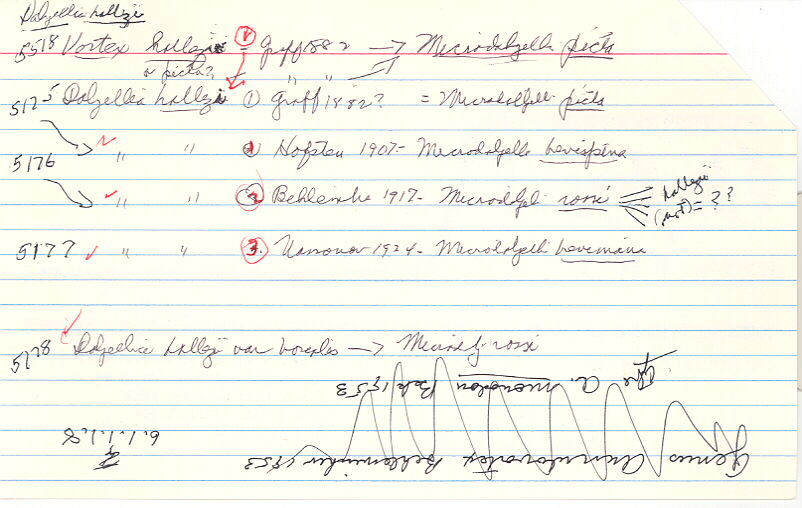 Dalyellia hallezi
5518 Vortex hallezii ① = Graff 1882 → Microdalyellia picta
or picta?
" "
5175 Dalyellia hallezi ① Graff 1882? = Microdalyell. picta
5176 " " Hofsten 1907 - Microdalyellia brevispina
" " ② Beklemishe 1917 - Microdalyel. rossi hallezii
(not) = ??
5177 " " ③. Nassonov 1924 - Microdalyelli brevimana
5178 Dalyellia hallezi var borealis → Microdalj. rossi
Type A. Bek 1953
Genus Beklemishev 1953
6.1.1.1.8